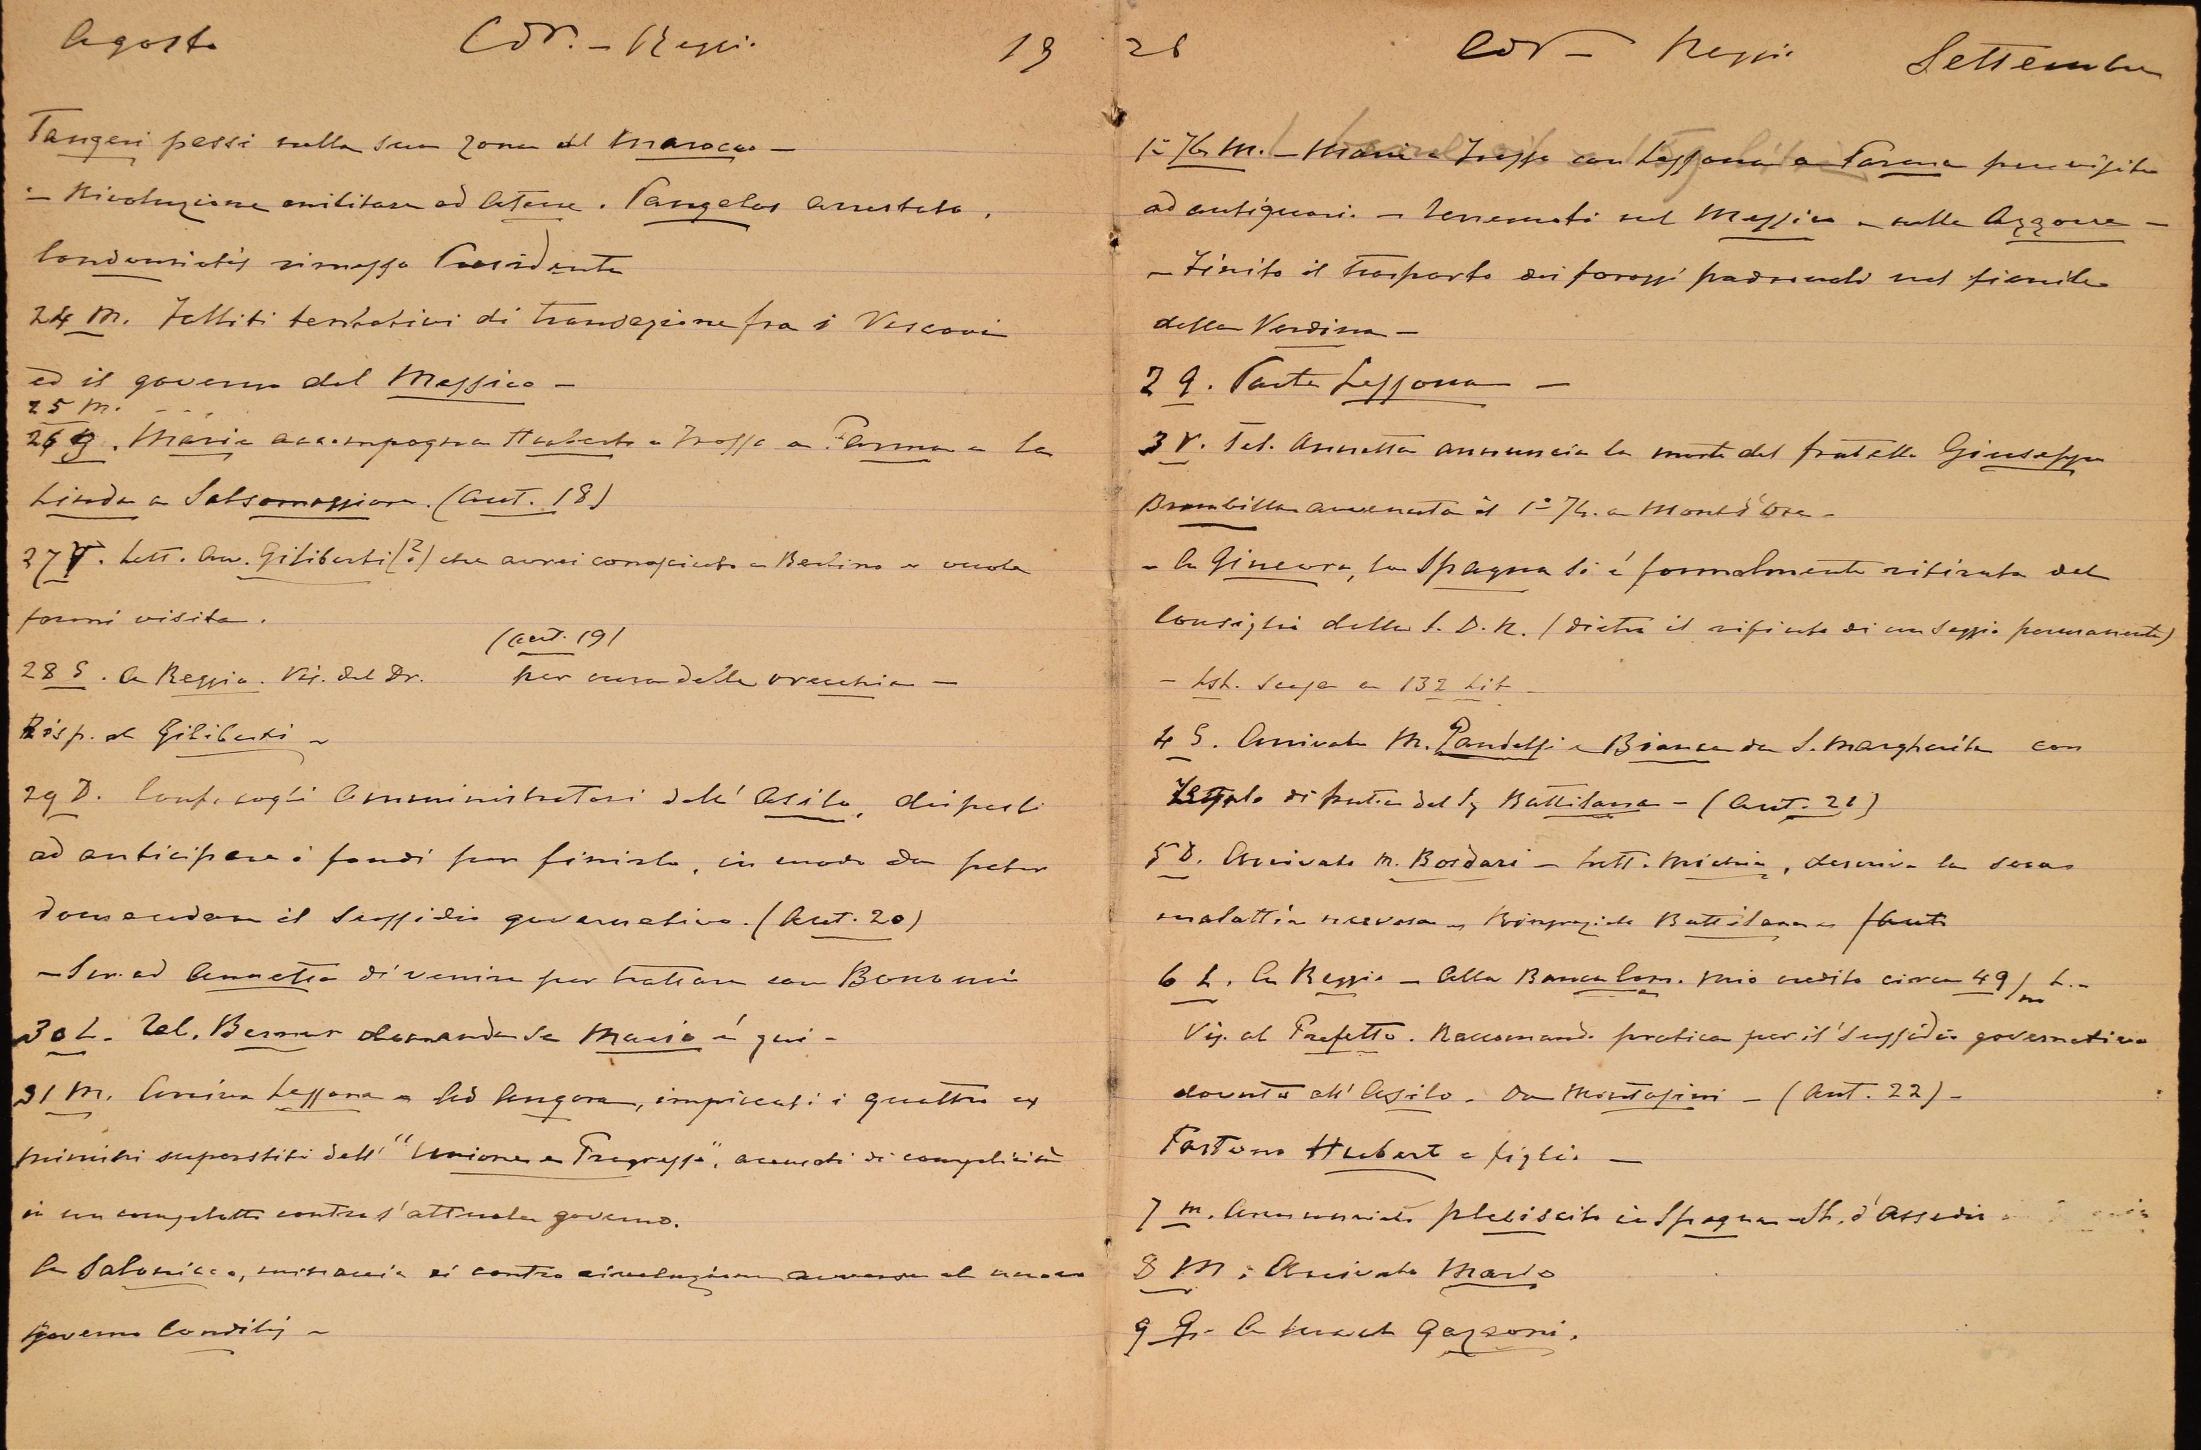 Agosto Cdr. - Reggio 19
Tangeri passi nella sua zona del Marocco -
- Rivoluzione militare ad Atene. Pangalos arrestato.
Conduriotis rimesso Presidente
24 M. Falliti tentativi di transazione fra i Vescovi
ed il governo del Messico -
25 M.
26 G. Maria accompagna Huberto e Troffo a Parma e la
Linda a Salsomaggiore. (Aut. 18)
27 V. Lett. Avv. Giliberti (?) che avrei conosciuto a Berlino e vuole
farmi visita.
(Aut. 19)
28 S. A Reggio. Vis. del Dr. per cura delle orecchie -
Risp. a Giliberti -
29 D. Conf. cogli Amministratori dell' Asilo, disposti
ad anticipare i fondi per finirlo, in modo da poter
domandare il sussidio governativo. (Aut. 20)
- Scr. ad Annetta di venire per trattare con Bonomi
30 L. Tel. Berner domanda se Mario è qui -
31 M. Arriva Lessona - Ad Angora, impiccati i quattro ex
ministri superstiti dell' "Unione e Progresso", accusati di complicità
in un complotto contro l'attuale governo.
A Salonicco, minaccia di contro rivoluzione avversa al nuovo
governo Condilis -
26 Cdr - Reggio Settembre
1° 7bre M. - Maria e Troffo con Lessona a Parma per visita
ad antiquari - Terremoti nel Messico e nelle Azzorre -
- Finito il trasporto dei foraggi padronali nel fienile
della Verdina -
2 G. Parte Lessona -
3 V. Tel. Annetta annuncia la morte del fratello Giuseppe
Brambilla avvenuta il 1° 7b. a Mont d'Ore -
- A Ginevra, la Spagna si è formalmente ritirata dal
Consiglio della S.D.N. (dietro il rifiuto di un seggio permanente)
- Lst. scesa a 132 Lit -
4 S. Arrivate M. Pandolfi e Bianca da S. Margherita con
di frutta del Sg Battilana - (Aut. 21)
5 D. Arrivato M. Bordari - Lett. Michia, descrive la sua
malattia nervosa - Ringraziato Battilana -
6 L. A Reggio - Alla Banca Com. mio credito circa 49/m L. -
Vis. al Prefetto. Raccomand. pratica per il sussidio governativo
dovuto all' Asilo. Da Montasini - (Aut. 22) -
Partono Hubert e figlio -
7 M. Annunciato plebiscito in Spagna - St. d'Assedio
8 M. Arrivato Mario
9 G. - A Gazzoni.